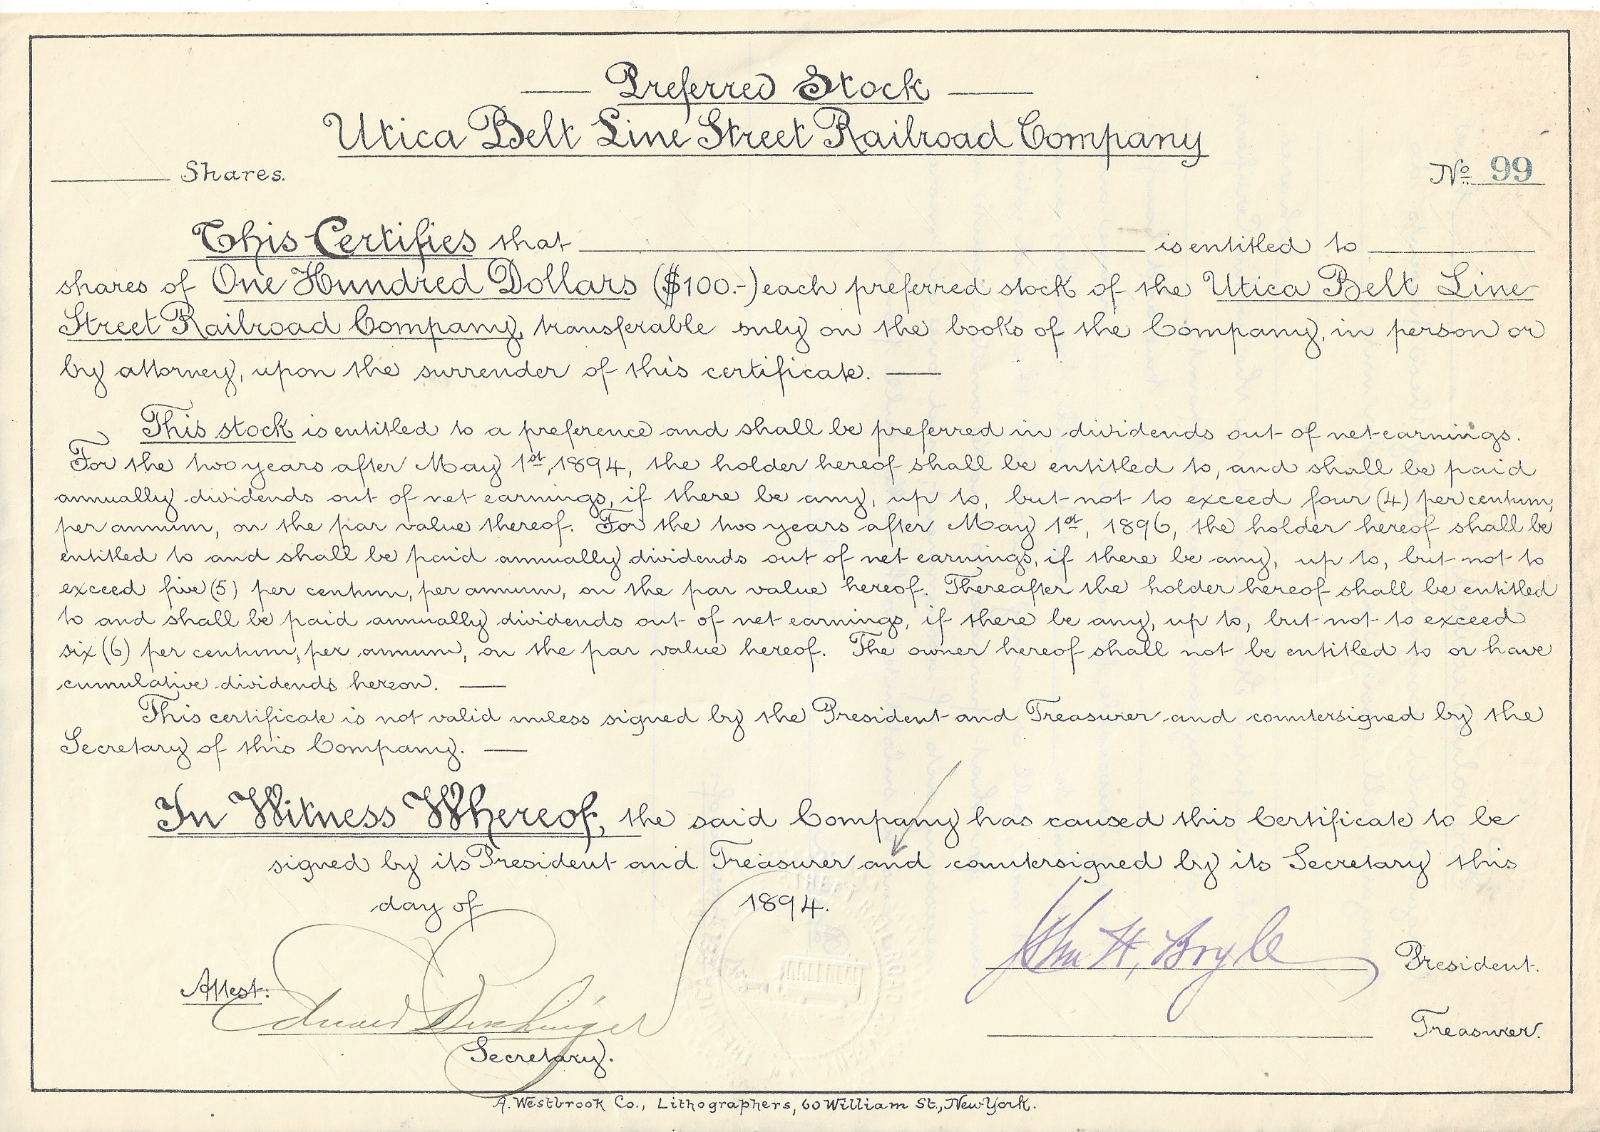 Preferred Stock
Utica Belt Line Street Railroad Company
Shares.
No 99
This Certifies that is entitled to
shares of One Hundred Dollars ($100.-) each preferred stock of the Utica Belt Line
Street Railroad Company, transferable only on the books of the Company, in person or
by attorney, upon the surrender of this certificate.
This stock is entitled to a preference and shall be preferred in dividends out of net earnings.
For the two years after May 1st, 1894, the holder hereof shall be entitled to, and shall be paid
annually dividends out of net earnings, if there be any, up to, but not to exceed four (4) per centum,
per annum, on the par value thereof. For the two years after May 1st, 1896, the holder hereof shall be
entitled to and shall be paid annually dividends out of net earnings, if there be any, up to, but not to
exceed five (5) per centum, per annum, on the par value hereof. Thereafter the holder hereof shall be entitled
to and shall be paid annually dividends out of net earnings, if there be any, up to, but not to exceed
six (6) per centum, per annum, on the par value hereof. The owner hereof shall not be entitled to or have
cumulative dividends hereon.
This certificate is not valid unless signed by the President and Treasurer and countersigned by the
Secretary of this Company.
In Witness Whereof, the said Company has caused this Certificate to be
signed by its President and Treasurer and countersigned by its Secretary this
day of 1894.
STREET RAILROAD
John H. Boyle
President.
Attest:
Edward
Treasurer.
Secretary.
A. Westbrook Co., Lithographers, 60 William St., New-York.